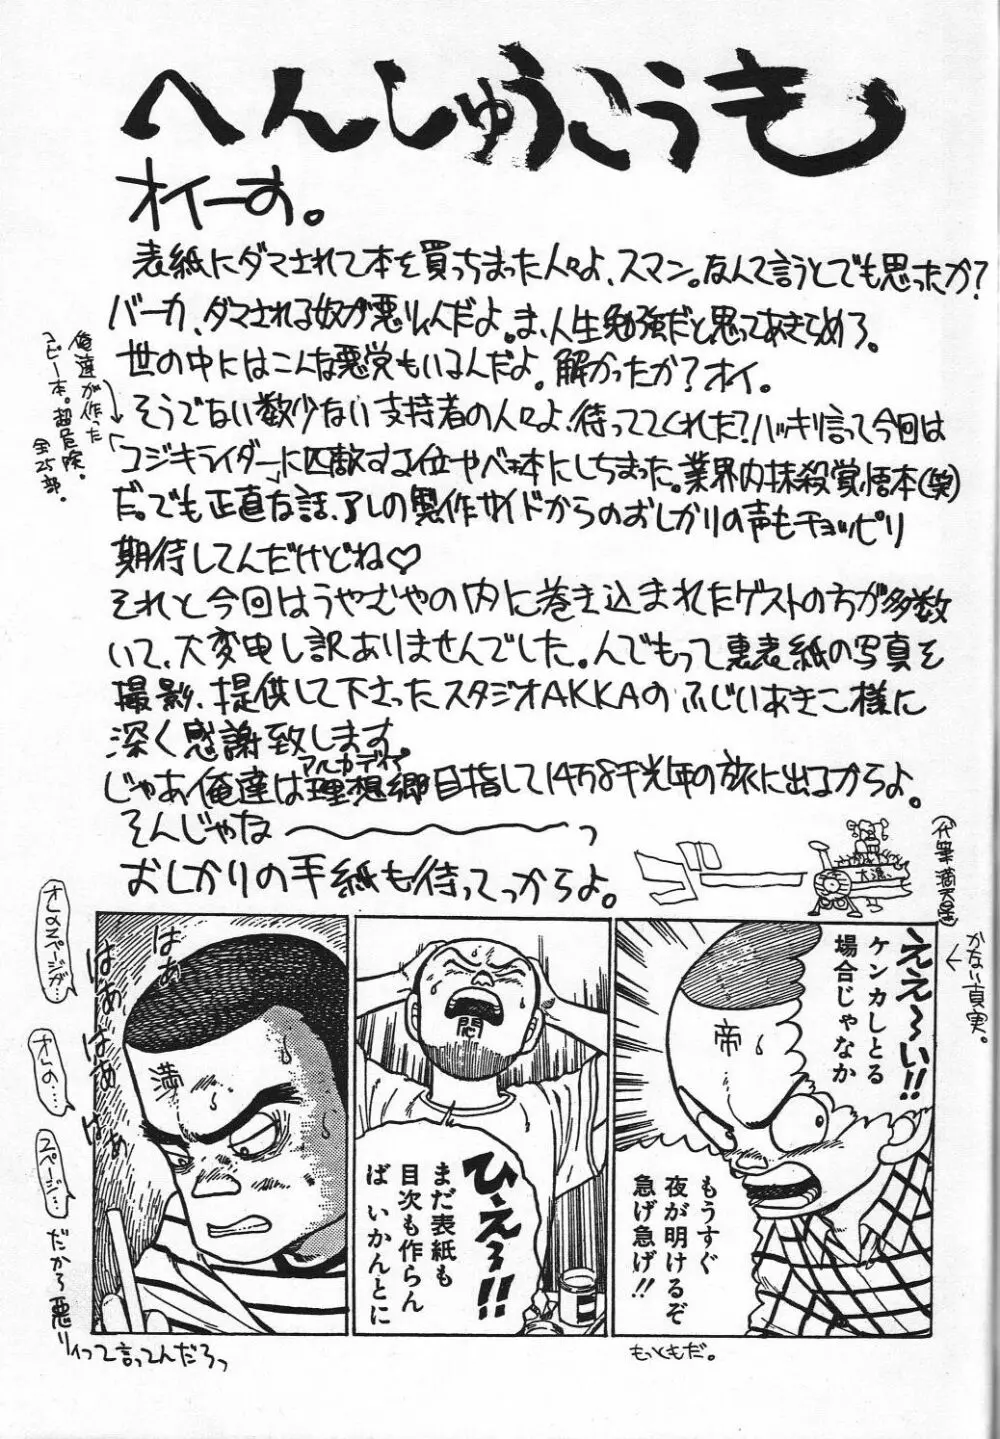 へんしゅうこうき
オイーす。
表紙にダマされて本を買っちまった人々よ、スマン。なんて言うとでも思ったか?
バーカ、ダマされる奴が悪りいんだよ。ま、人生勉強だと思ってあきらめろ。
世の中にはこんな悪党もいるんだよ。解かったか?オイ。
そうでない数少ない支持者の人々よ!待っててくれた?ハッキリ言って今回は
コジキライダーに匹敵する位やべェ本にしちまった。業界内抹殺覚悟本(笑)
だ。でも正直な話、アレの製作サイドからのおしかりの声もチョッピリ
期待してんだけどね♡
俺達が作った
コピー本。超危険。
全25部。
それと今回はうやむやの内に巻き込まれたゲストの方が多数
いて、大変申し訳ありませんでした。んでもって裏表紙の写真を
撮影、提供して下さったスタジオAKKAのふじいあきこ様に
深く感謝致します。
じゃあ俺達は理想郷目指して14万8千光年の旅に出るからよ。
アルカディア
そんじゃな〜っ
おしかりの手紙も待ってっからよ。
大漁
(代筆 満天星)
かない真実。
ええ〜い!!
ケンカしとる
場合じゃなか
帝
もうすぐ
夜が明けるぞ
急げ急げ!!
もっともだ。
悶
ひえ〜!!
まだ表紙も
目次も作らん
ば いかんとに
満
はぁ
はぁ
はぁ
はぁ
オレのスペースが…
オレの…
スペース…
だから悪りィって言ってんだろっ